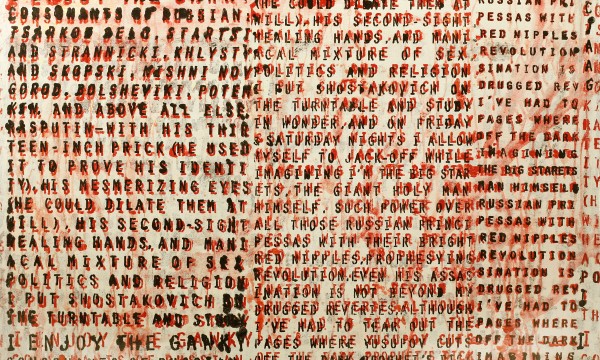 CONSONANTS OF RUSSIAN
TSARKOE SELO STARTSI
AND STRANNICKI, KHLYSTY
AND SKOPSKI, NISHNI NOV
GOROD, BOLSHEVIKI, POTEM
KEN, AND ABOVE ALL ELSE,
RASPUTIN—WITH HIS THIR
TEEN-INCH PRICK (HE USED
IT TO PROVE HIS IDENTI
TY), HIS MESMERIZING EYES
(HE COULD DILATE THEM AT
WILL), HIS SECOND-SIGHT,
HEALING HANDS, AND MANI
ACAL MIXTURE OF SEX,
POLITICS AND RELIGION
I PUT SHOSTAKOVICH ON
THE TURNTABLE AND
I ENJOY THE
(HE COULD DILATE THEM AT
WILL), HIS SECOND-SIGHT,
HEALING HANDS, AND MANI
ACAL MIXTURE OF SEX,
POLITICS AND RELIGION
I PUT SHOSTAKOVICH ON
THE TURNTABLE AND STUDY
IN WONDER AND ON FRIDAY
& SATURDAY NIGHTS I ALLOW
MYSELF TO JACK-OFF WHILE
IMAGINING I'M THE BIG STAR
ETS THE GIANT HOLY MAN
HIMSELF, SUCH POWER OVER
ALL THOSE RUSSIAN PRINC
PESSAS WITH THEIR BRIGHT
RED NIPPLES, PROPHESYING
REVOLUTION, EVEN HIS ASSAS
SINATION IS NOT BEYOND MY
DRUGGED REVERIES, ALTHOUGH
I'VE HAD TO TEAR OUT THE
PAGES WHERE YUSUPOV CUTS
OFF THE DARK
RUSSIAN PRI
PESSAS WITH
RED NIPPLES
REVOLUTION
SINATION IS
DRUGGED REV
I'VE HAD TO
PAGES WHERE
OFF THE DARK
IMAGINING
THE BIG STARETS
MAN HIMSELF
RUSSIAN PRI
PESSAS WITH
RED NIPPLES
REVOLUTION
SINATION IS
DRUGGED REV
I'VE HAD TO
PAGES WHERE
OFF THE DARK